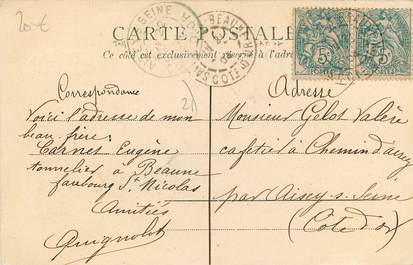 20 €
CARTE POSTALE
Ce côté est exclusivement réservé à l'adresse
Correspondance
Voici l'adresse de mon
beau-frère:
Carnet Eugène
tonnelier à Beaune
faubourg St Nicolas
Amitiés
Guignolot
21
Adresse
Monsieur Gelot Valère
cafetier à Chemin d'arcey
par Aisey-s-Seine
(Côte d'or)